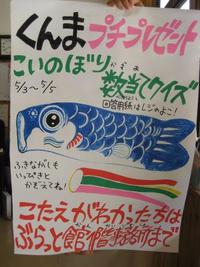 くんま プチプレゼント
こいのぼり
かずあ
数当てクイズ
5/3~5/5
回答用紙はレジのよこ!
ふきながしも
いっぴきと
かぞえてね!
こたえがわかったらは
ぶらっと館 事務所まで